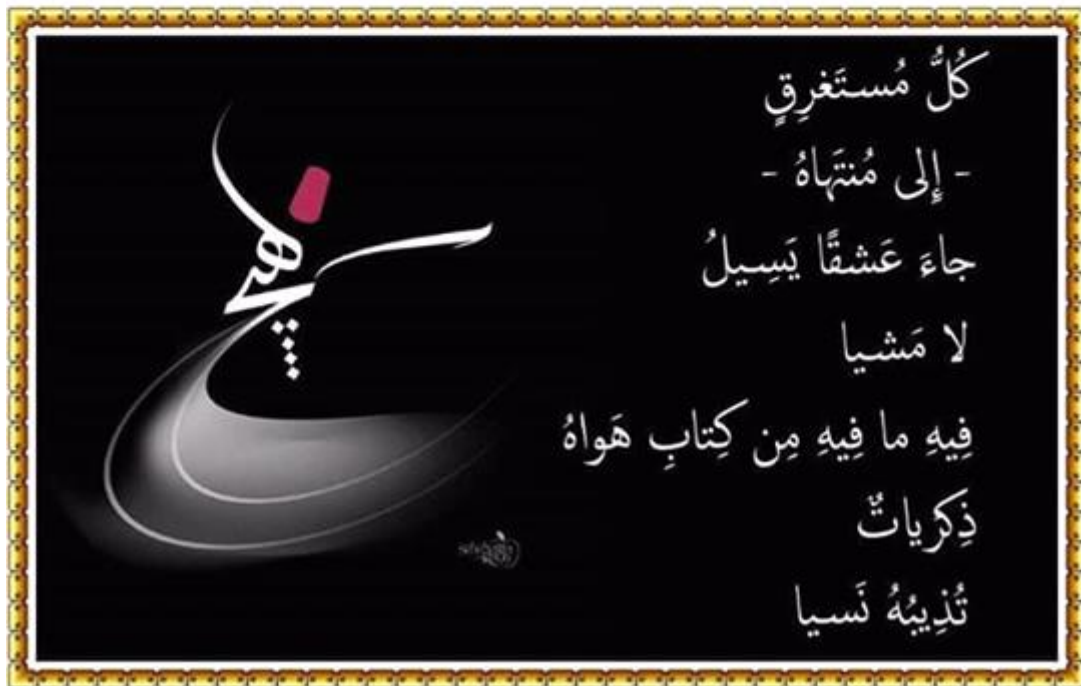 كُلُّ مُستَغرِقٍ
- إِلى مُنتَهاهُ -
جاءَ عَشقًا يَسِيلُ
لا مَشيا
فِيهِ ما فِيهِ مِن كِتابِ هَواهُ
ذِكرَياتٌ
تُذِيبُهُ نَسيا